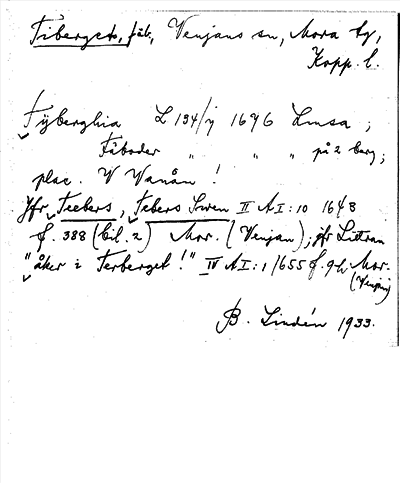 Fiberget, fäb., Venjans sn, Mora tg,
Kopp. l.
Fÿberghia L 134/7 1696 Limsa ;
Fäboder " " " på 2 berg ;
plac. V Vanån !
Jfr Feebers, Febers Swen II A I : 10 1643
f. 388 (bil. 2) Mor. (Venjan) ; jfr
"åker i Ferberget !" IV A I : 1 /655 f. 94 Mor.
(Venjan)
B. Lindén 1933.